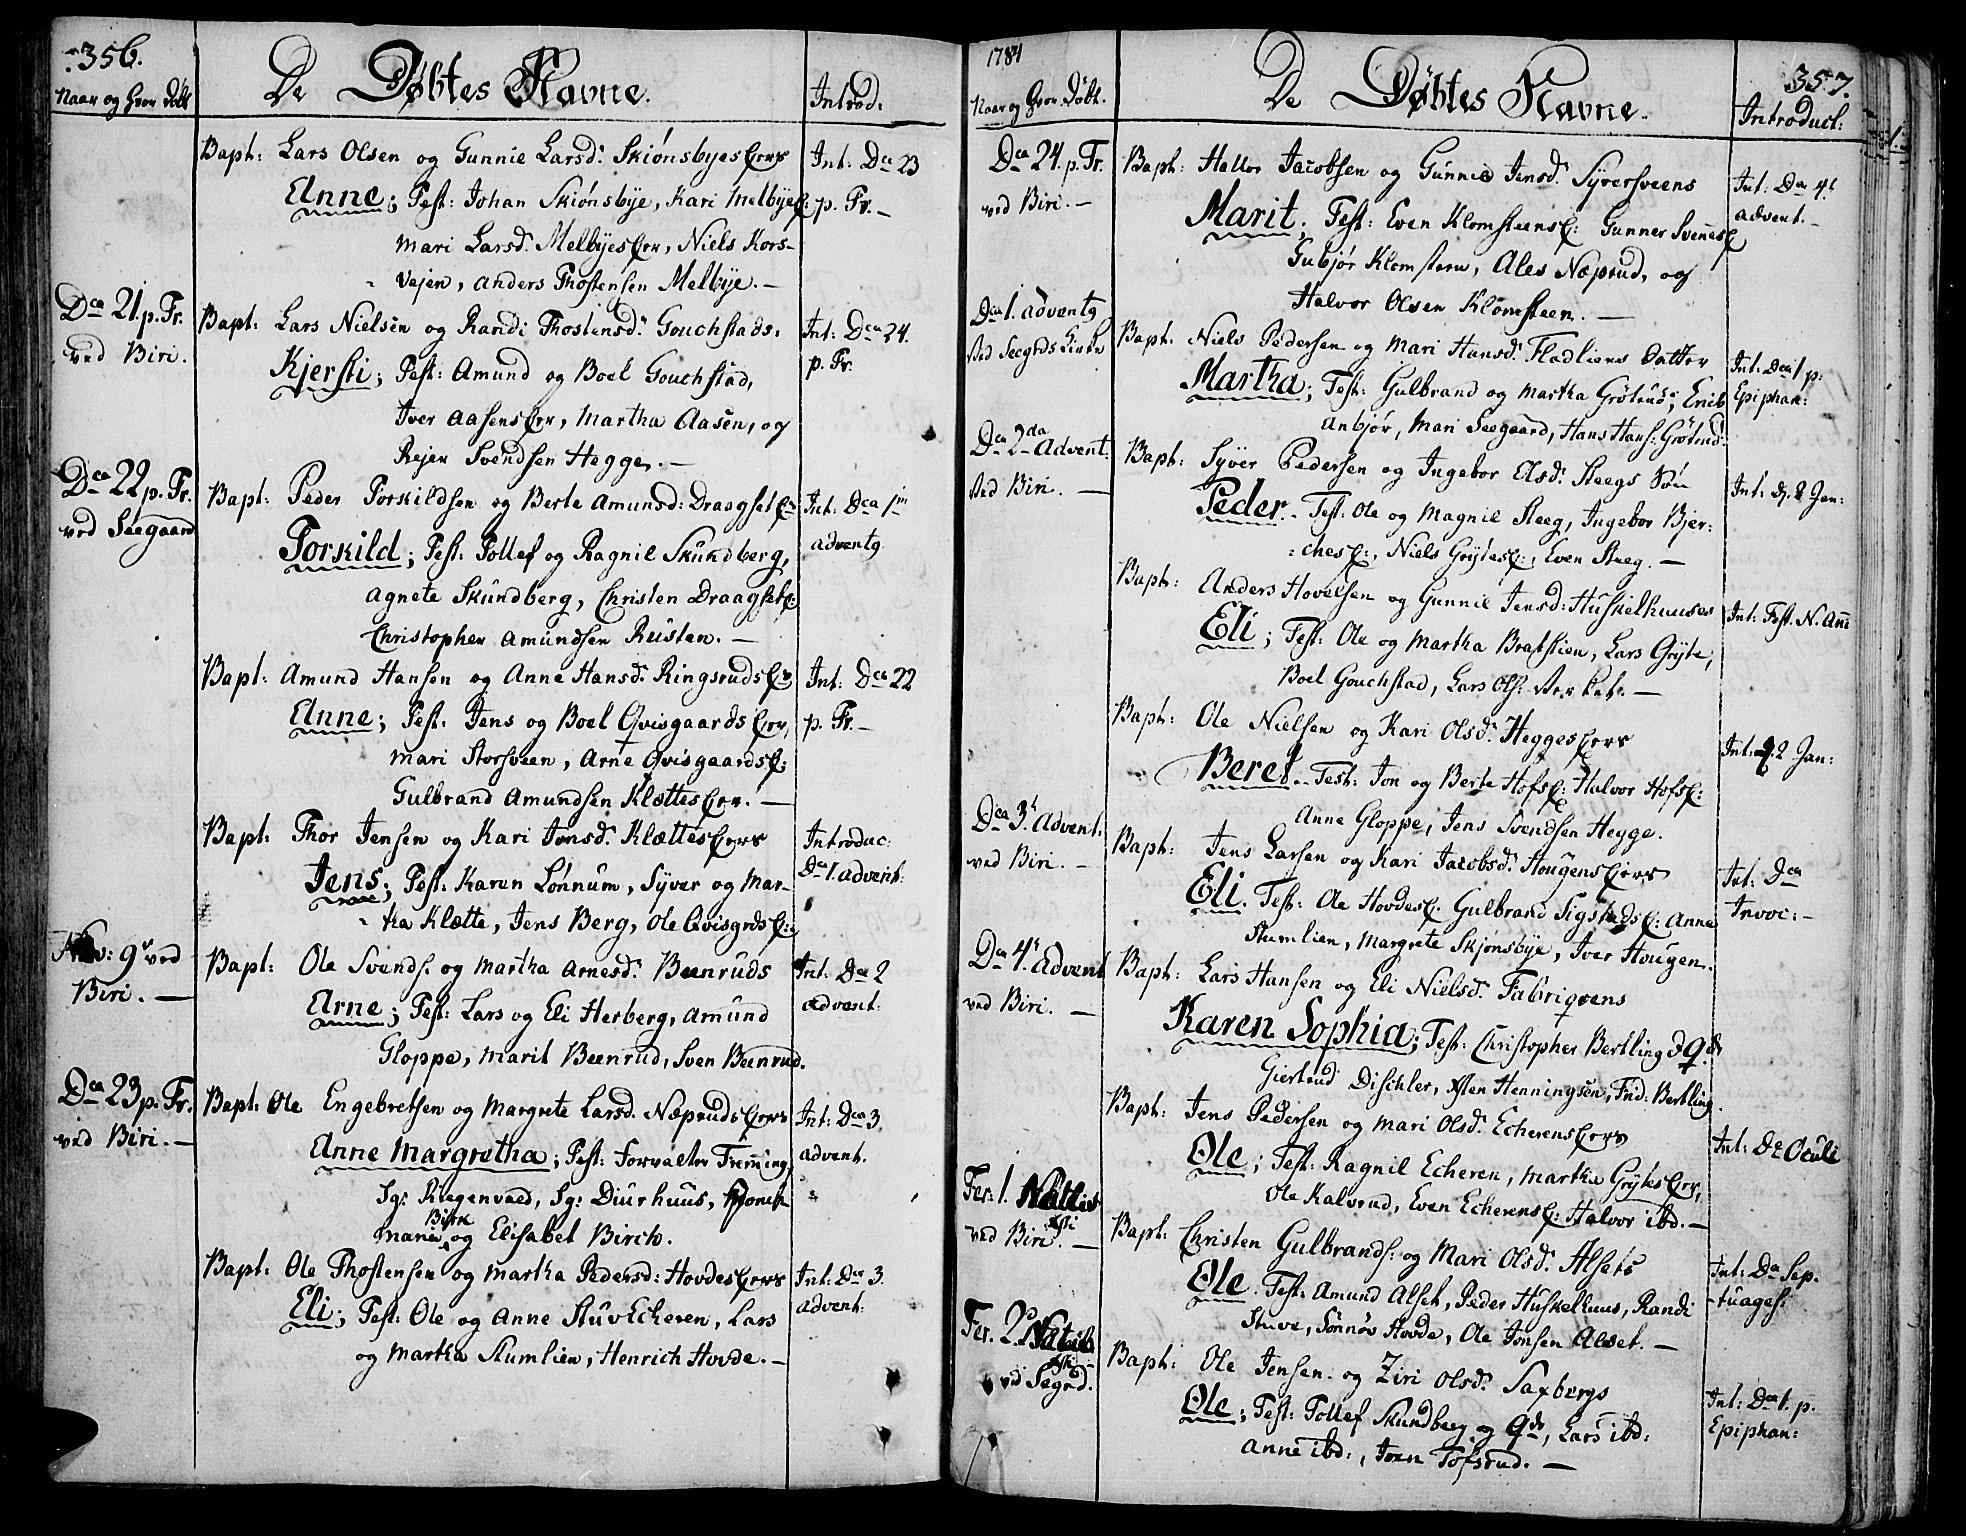 356.
Naar og Hvor Døbt
De Døbtes Navne.
Introd:
Bapt: Lars Olsen og Gunnie Larsd: Skiønsbyes
Int: Dca 23
Anne; Test: Johan Skiønsbye, Kari Melbye
p. Tr. —
Mari Larsd: Melbyes, Niels Kors-
vejen, Anders Thostensen Melbye. —
Dca 21. p. Tr.
ved Biri.
Bapt: Lars Nielsen og Randi Thostensd: Gouchstads.
Int: Dca 24.
p. Tr.
Kjersti; Test: Amund og Boel Gouchstad,
Iver Aasens, Martha Aasen, og
Rejer Svendsen Hegge. —
Dca 22 p. Tr.
ved Seegaard
Bapt: Peder Torskildsen og Berte Amunsd: Draagset
Int: Dca 1m
adventg
Torskild; Test: Tollef og Ragnil Skundberg,
Agnete Skundberg, Christen Draagset
Christopher Amundsen Rusten. —
Bapt: Amund Hansen og Anne Hansd: Ringsruds
Int: Dca 22
p. Tr. —
Anne; Test: Jens og Boel Qvisgaards
Mari Storsveen, Arne Qvisgaards
Gulbrand Amundsen Klættes —
Bapt: Thor Jensen og Kari Jonsd: Klættes
Introduc:
Dca 1. advent:
Jens; Test: Karen Lønnum, Syver og Mar-
tha Klætte, Jens Berg, Ole Qvisgrds
Nov: 9de ved
Biri. —
Bapt: Ole Svends: og Martha Arnesd: Beenruds
Int: Dca 2
advent:
Arne; Test: Lars og Eli Herberg, Amund
Gloppe, Marit Beenrud, Sven Beenrud.
Dca 23 p. Tr.
ved Biri. —
Bapt: Ole Engebretsen og Margrete Larsd. Næpruds
Int: Dca 3.
advent.
Anne Margretha; Test: Forvalter Fremming,
Sg: Riegenvaed, Sg: Diurhuus,
Birk
og Elisabet Birch.
Bapt: Ole Thostensen og Martha Pedersd: Hovdes
Int: Dca 3.
advent:
Eli; Test: Ole og Anne StuvEcheren, Lars
og Martha Stumlien, Henrich Hovde. —
1784
357.
Naar og Hvor Døbt.
De Døbtes Navne.
Introduct:
Dca 24. p. Tr.
ved Biri. —
Bapt: Halvor Jacobsen og Gunnie Jensd: Syversveens
Int: Dca 4t
advent. —
Marit; Test: Even Klomsteens: Gunner Svenes
Gubjør Klomsteen, Ales Næprud, og
Halvor Olsen Klomsteen. —
Dca 1. adventg
Ved Seegrds Kirke
Bapt: Niels Pedersen og Mari Hansd: Fladliens Datter
Int: Dca 1 p:
Epiphan:
Martha; Test: Gulbrand og Martha Grøtrud, Erik
Anbjør, Mari Seegaard, Hans Hans: Grøtrud.
Dca 2da Advent:
Ved Biri. —
Bapt: Syver Pedersen og Ingebor Olsd: Steegs Søn
Int: D. 2 Jan:
Peder. Test: Ole og Magnil Steeg, Ingebor Bjer-
ches:, Niels Grytes:, Even Steeg. —
Bapt: Anders Hovelsen og Gunnil Jensd: Huskelhuuses
Int: Fest. N. Anni
Eli; Test: Ole og Martha Bratlien, Lars Gryte,
Boel Gouchstad, Lars Ols: —
Bapt: Ole Nielsen og Kari Olsd: Hegges
Int: D. 2 Jan:
Beret. Test: Jon og Berte Hofs: Halvor Hofs:
Anne Gloppe, Jens Svendsen Hegge.
Dca 3t Advent:
ved Biri. —
Bapt: Jens Larsen og Kari Jacobsd: Hougens
Int: Dca
Invoc: —
Eli. Test: Ole Hovdes: Gulbrand Sigstads: Anne
Stumlien, Margrete Skjønsbye, Iver Hougen.
Dca 4t Advent
ved Biri. —
Bapt: Lars Hansen og Eli Nielsd: Fabriqvens
Karen Sophia; Test: Christopher Bertling
Giertrud Dischler, Henningsen, Frid: Bertling.
Bapt: Jens Pedersen og Mari Olsd: Echerens
Int: De Oculi
Ole; Test: Ragnil Echeren, Martha Grytes
Ole Kalvrud, Even Echerens: Halvor ibd. —
Fer: 1. Natalis
Xsti
ved Biri. —
Bapt: Christen Gulbrands: og Mari Olsd: Alsets
Int: Dca Sep-
tuages:
Ole. Test: Amund Alset, Peder Huskelhuus, Randi
Stuve, Sønnøv Hovde, Ole Jonsen Alset. —
Fer. 2 Natalis
Xsti
vid Segrd.
Bapt: Ole Jensen og Ziri Olsd: Saxbergs
Int: Dca 1. p.
Epiphan:
Ole; Test: Tollef Skundberg og, Lars ibd:
Anne ibd:, Joen Tofsrud. —